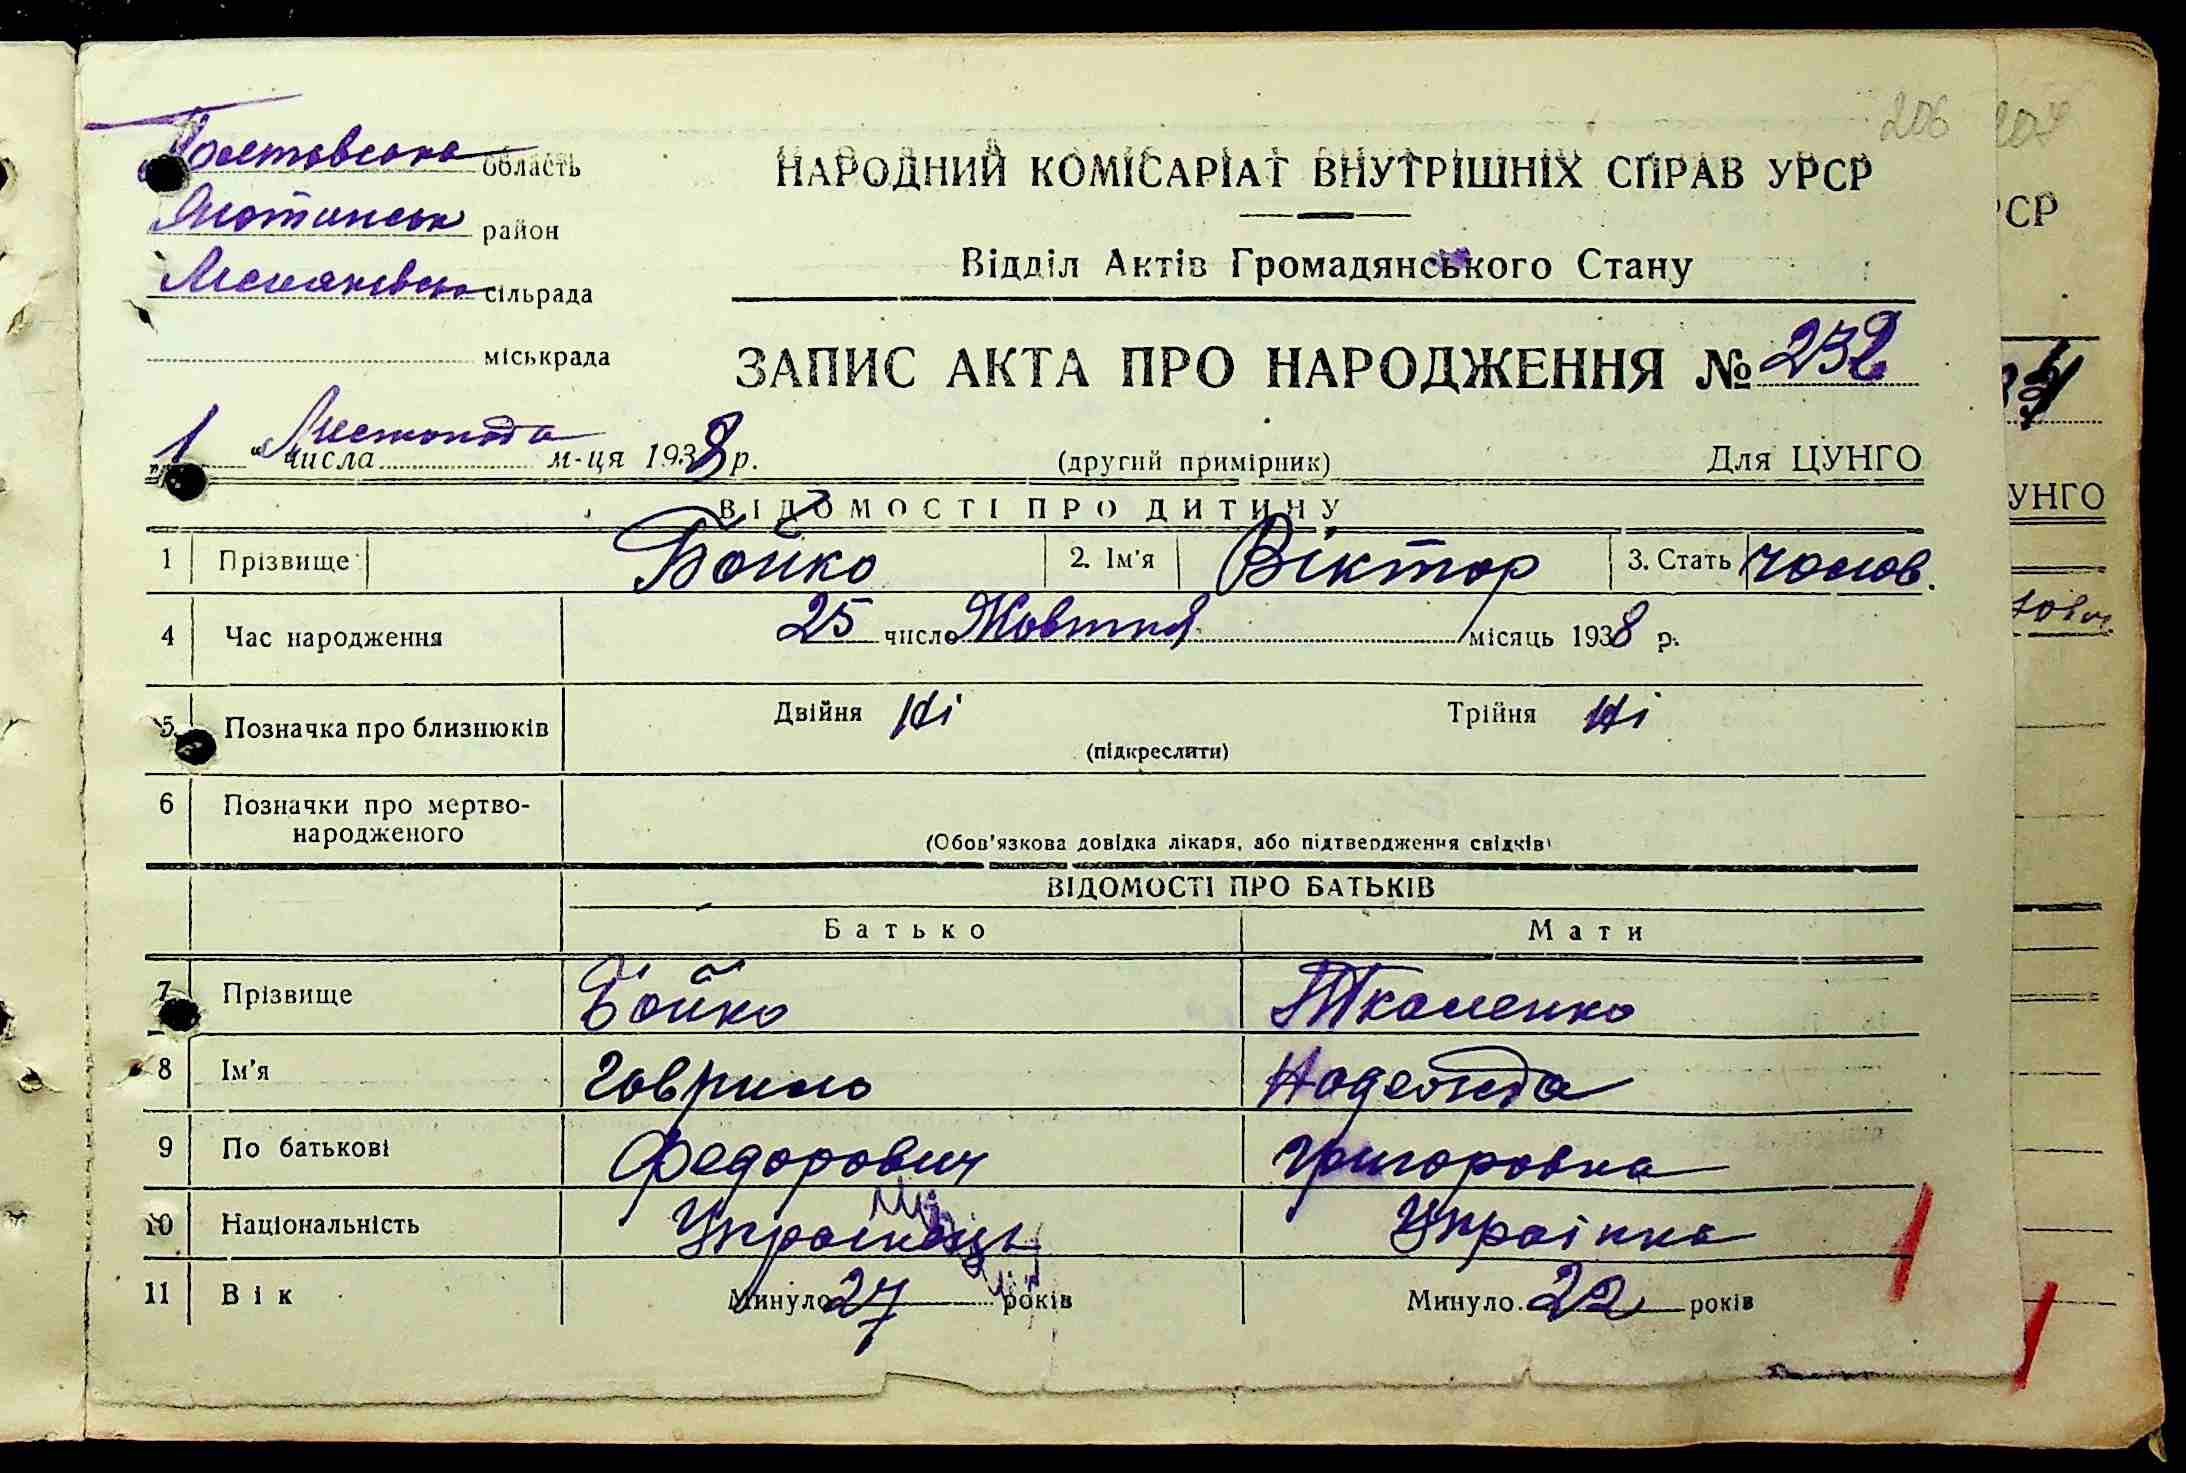 206 207
Полтавська область
Яготинськ район
сільрада
міськрада
НАРОДНИЙ КОМІСАРІАТ ВНУТРІШНІХ СПРАВ УРСР
РСР
Відділ Актів Громадянського Стану
ЗАПИС АКТА ПРО НАРОДЖЕННЯ № 232
„1“ числа Листопада м-ця 1938 р.
(другий примірник)
Для ЦУНГО
УНГО
ВІДОМОСТІ ПРО ДИТИНУ
1 Прізвище Бойко 2. Ім'я Віктор 3. Стать чолов.
4 Час народження 25 число Жовтня місяць 1938 р.
5 Позначка про близнюків Двійня Ні Трійня Ні
(підкреслити)
6 Позначки про мертво-
народженого
(Обов'язкова довідка лікаря, або підтвердження свідків)
ВІДОМОСТІ ПРО БАТЬКІВ
Батько Мати
7 Прізвище Бойко Ткаченко
8 Ім'я Гаврило Надежда
9 По батькові Федорович Григоровна
10 Національність Українець Українка
11 Вік Минуло 27 років Минуло 22 років